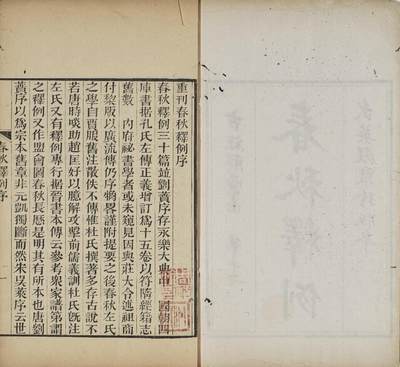 重刊春秋釋例序
春秋釋例三十篇並劉蕡序存永樂大典中 國朝四
庫書據孔氏左傳正義增訂爲十五卷以符隋經籍志
舊數 內府祕書學者或未窺見因與莊大令述祖商
付棃版以廣流傳仍序犆畧謹附提要之後春秋左氏
之學自賈服舊注散佚不傳惟杜氏撰著多存古說不
若唐時啖助趙匡好以臆解攻擊前儒義訓杜氏旣注
左氏又有釋例專行據晉書本傳云參考衆家譜第謂
之釋例又作盟會圖春秋長厯是明其有所本也唐劉
蕡序以爲宗本舊章非元凱獨斷而然朱
序云世
春秋釋例序
春秋釋例